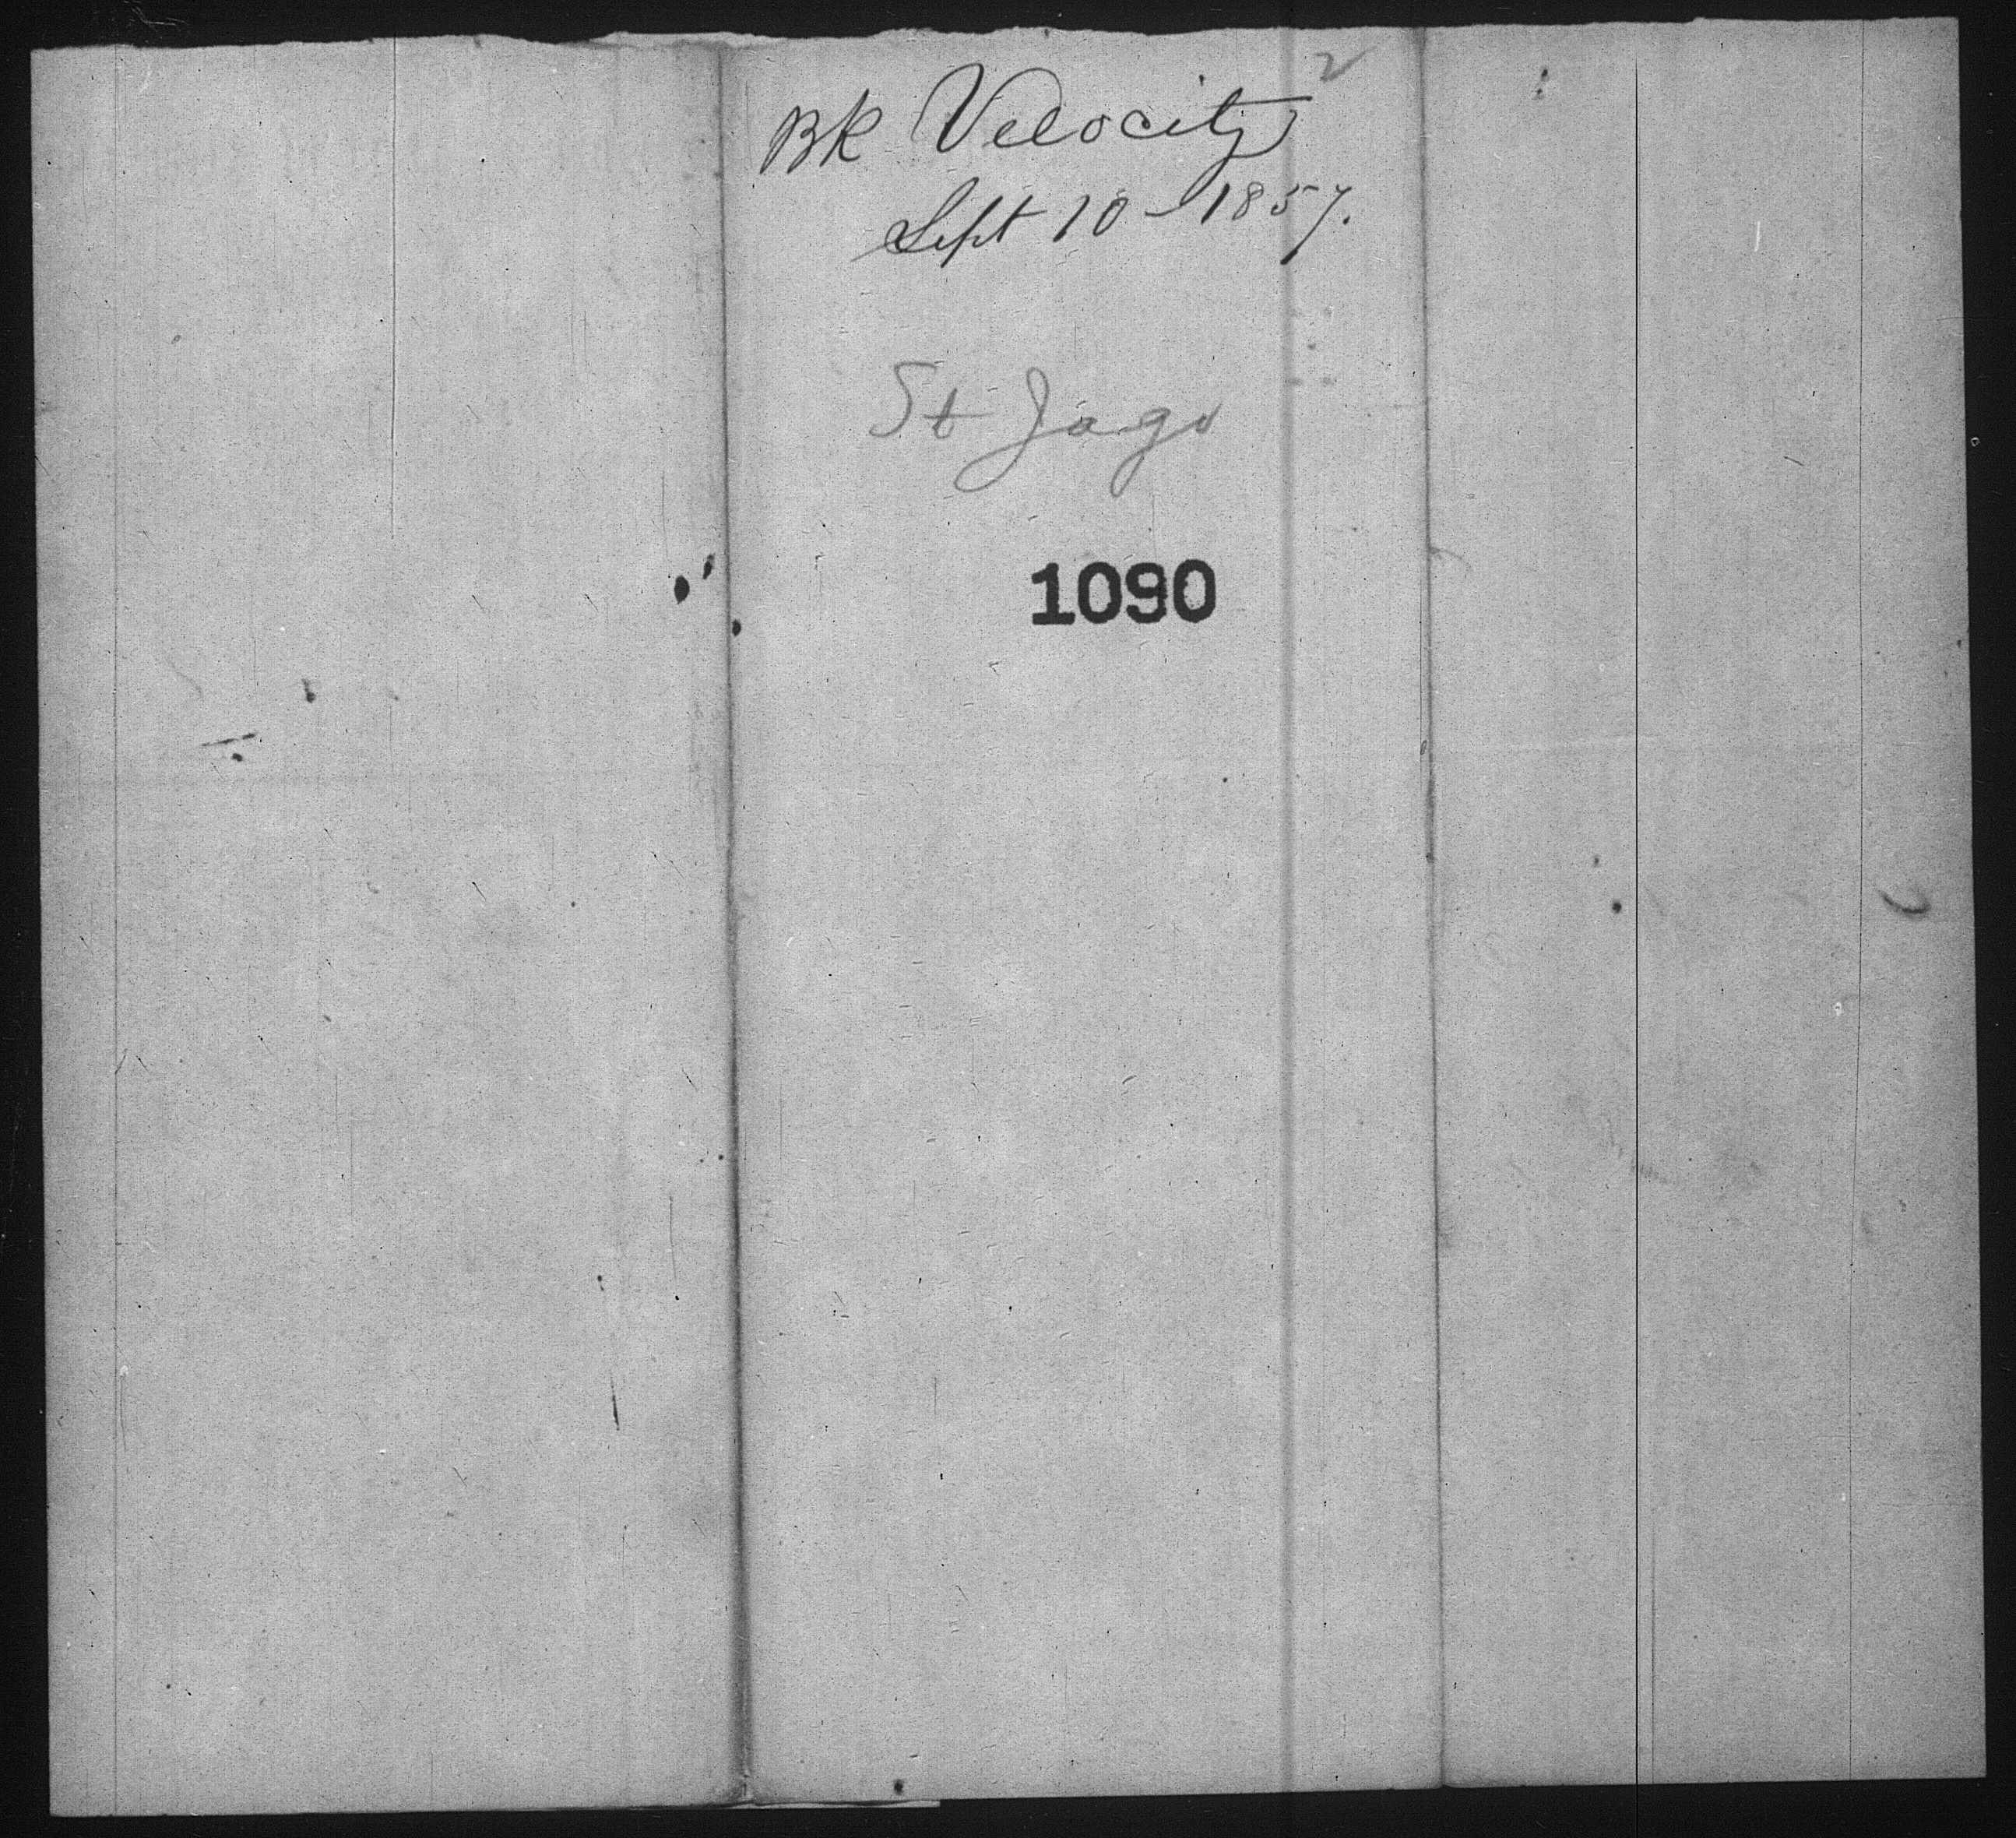 2
Bk Velocity
Sept 10 - 1857.
St Jago
1090